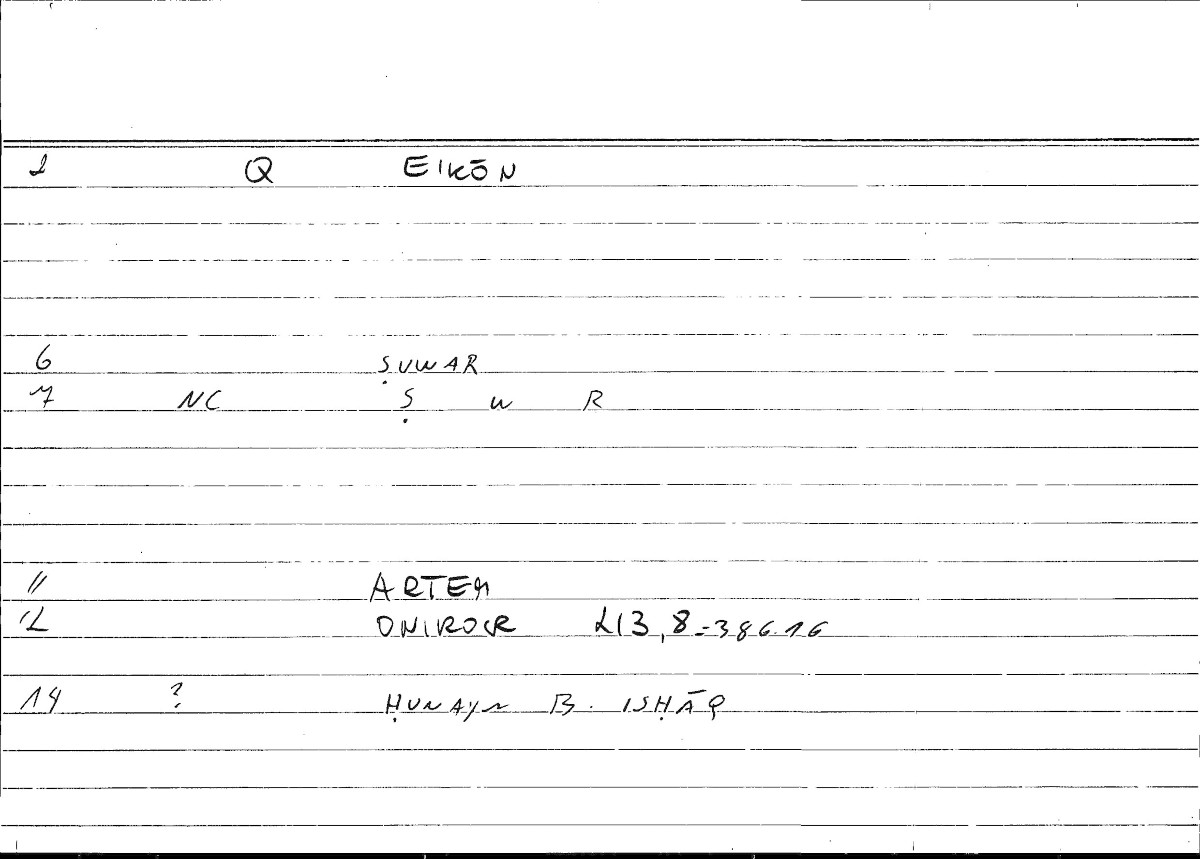 1 Q EIKŌN
6 ṢUWAR
7 NC Ṣ W R
11 ARTEM
12 ONIROCR 213,8=386.16
14 ? ḤUNAYN B. ISḤĀQ